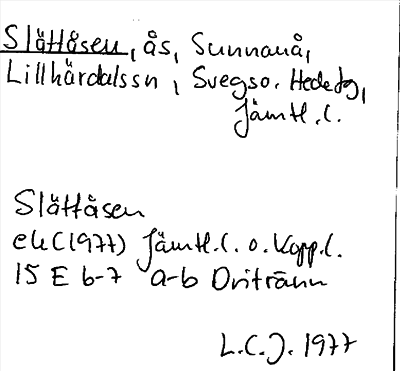 Slättåsen, ås, Sunnanå,
Lillhärdalssn, Svegso. Hedetg,
Jämtl.l.
Slättåsen
ek(1977) Jämtl.l. o. Kopp.l.
15 E 6-7 a-b Oriträнн
L.C.J. 1977